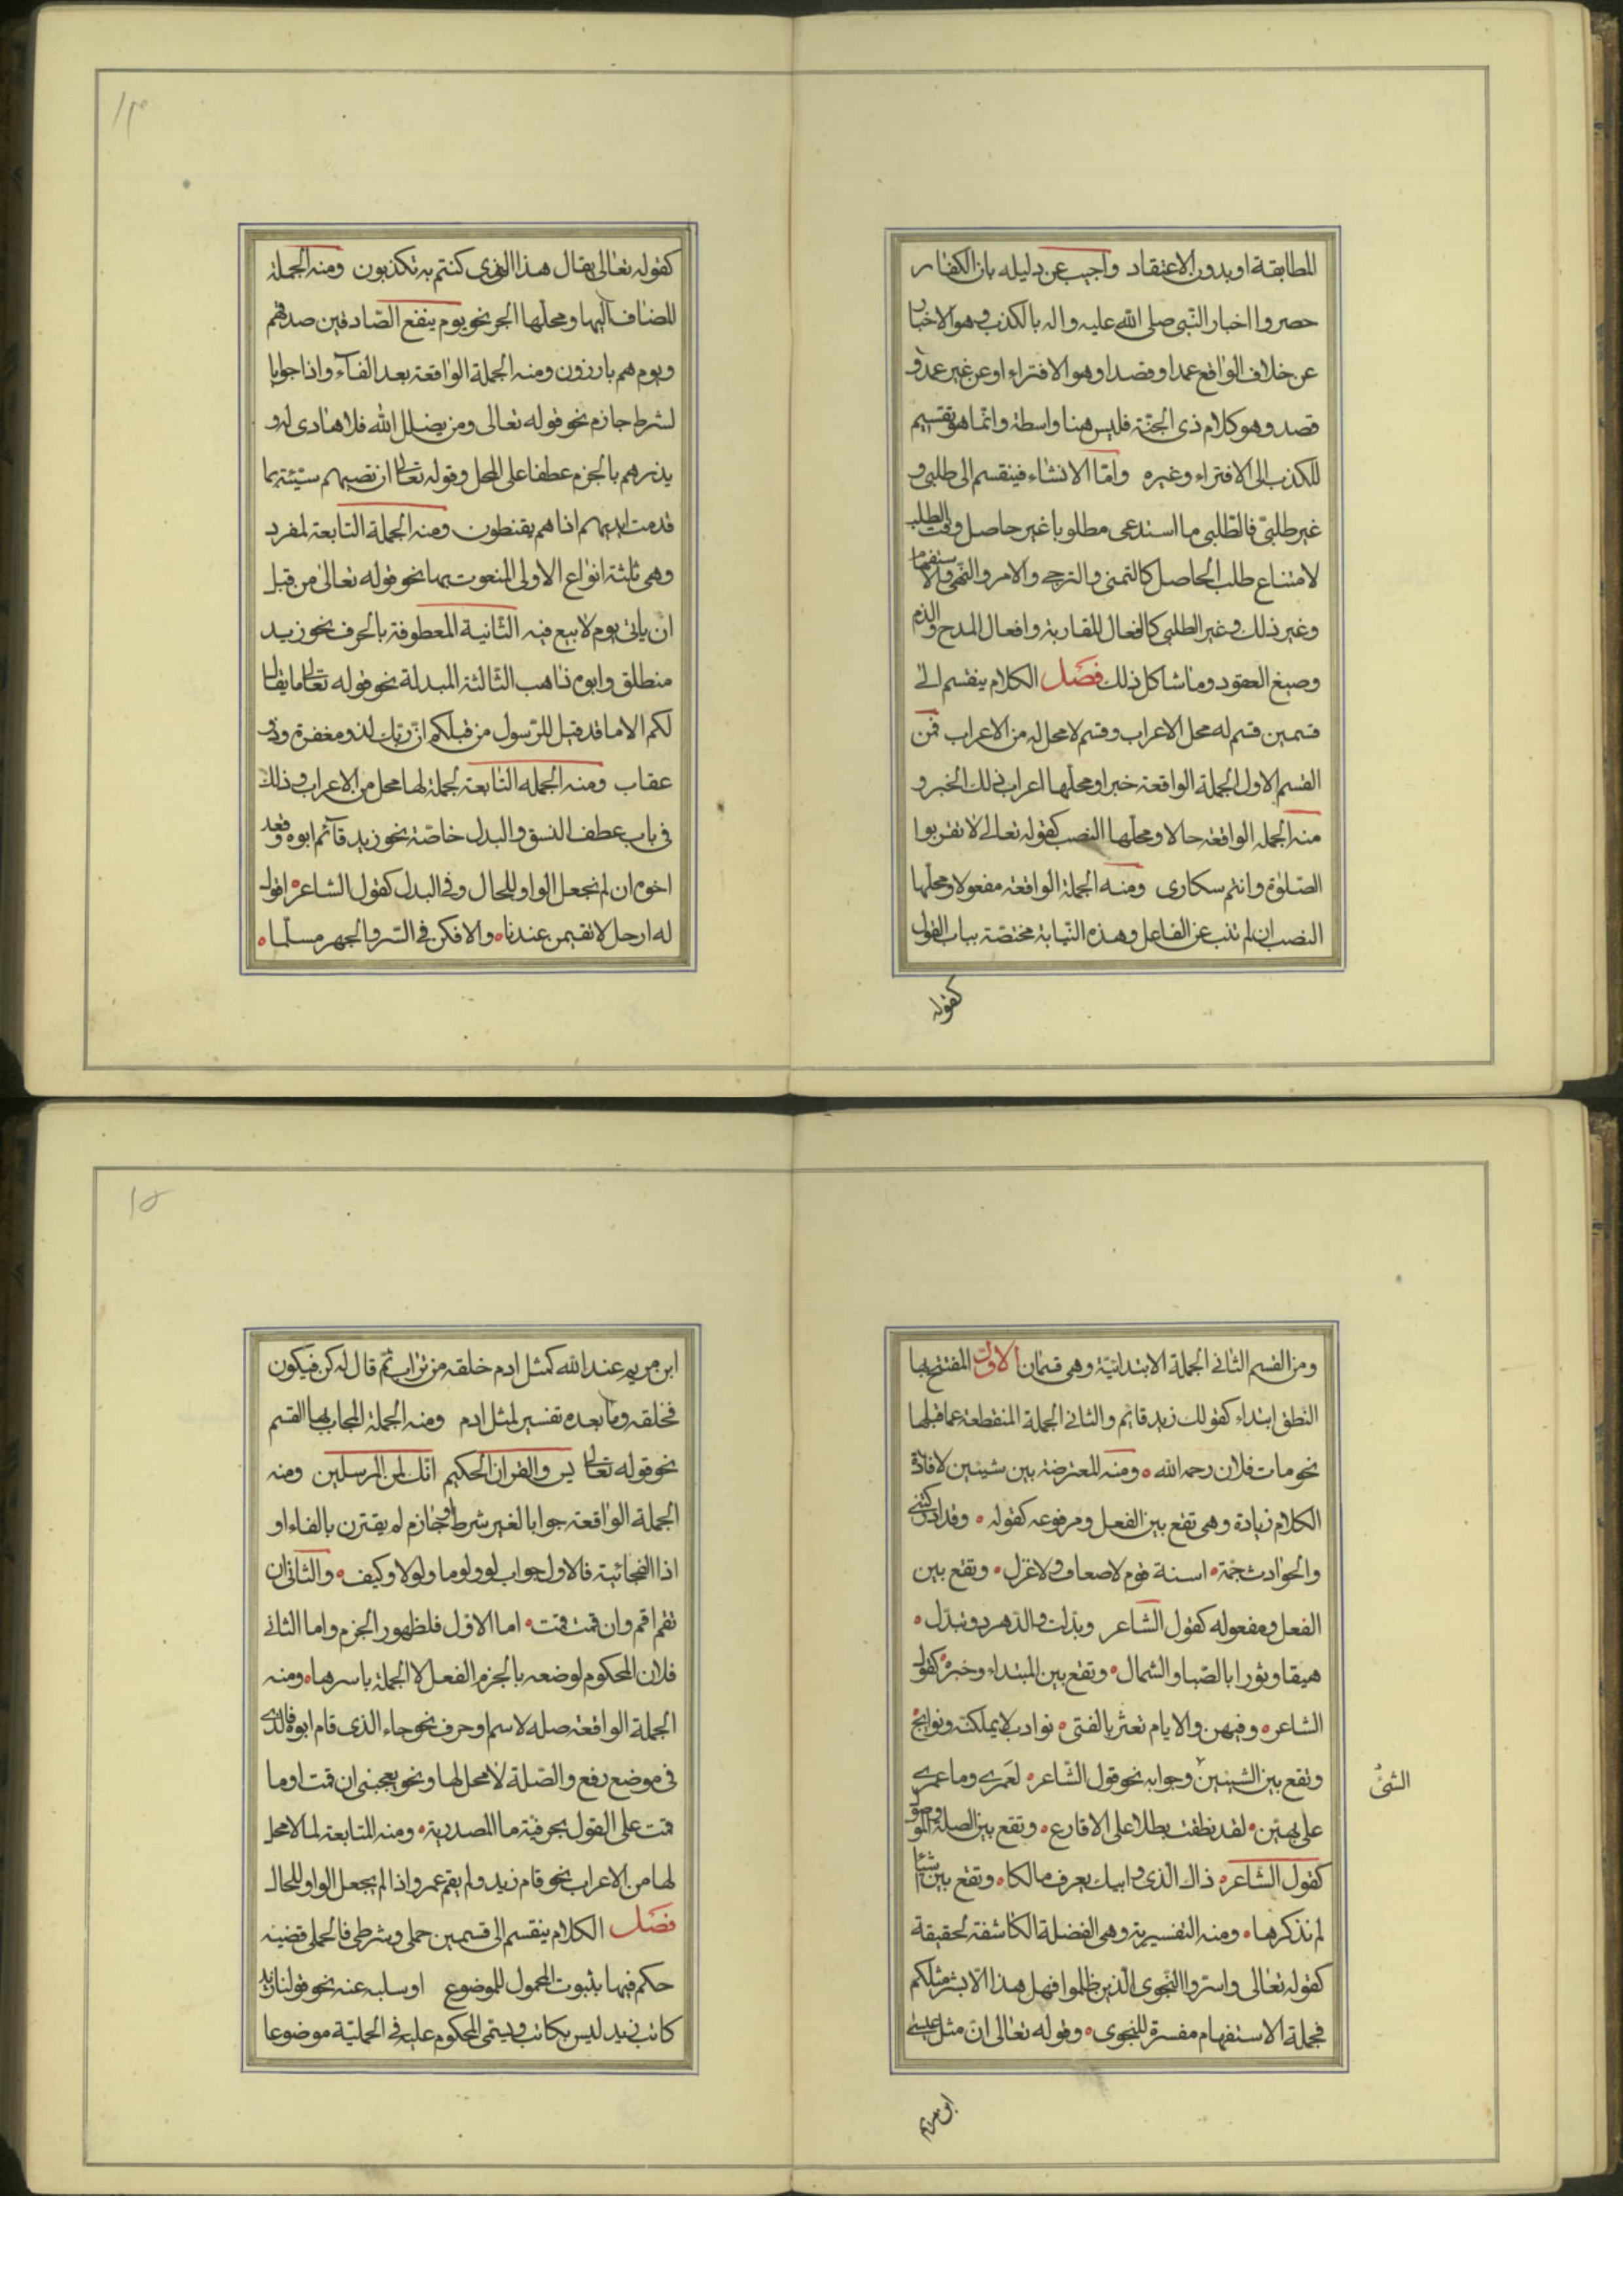 المطابقة او بدون الاعتقاد واجيب عن دليله بان الكفار
حصروا اخبار النّبي صلى الله عليه واله بالكذب وهو الاخبار
عن خلاف الواقع عمدا وقصدا وهو الافتراء او عن غير عمد و
قصد وهو كلام ذى الجنّة فليس هنا واسطة وانّما هو تقسيم
للكذب الى الافتراء وغيره وامّا الانشاء فينقسم الى طلبى و
غير طلبىّ فالطّلبى ما استدعى مطلوبا غير حاصل وقت الطلب
لامتناع طلب الحاصل كالتمنى والترجى والامر والنّهى والاستفهام
وغير ذلك وغير الطلبى كافعال المقاربة وافعال المدح والذم
وصيغ العقود وما شاكل ذلك فصل الكلام ينقسم الى
قسمين قسم له محل الاعراب وقسم لا محل له من الاعراب فمن
القسم الاول الجملة الواقعة خبرا ومحلّها اعراب ذلك الخبر و
منه الجمله الواقعة حالا ومحلّها النصب كقوله تعالى لا تقربوا
الصّلوة وانتم سكارى ومنه الجملة الواقعة مفعولا ومحلّها
النصب ان لم تنب عن الفاعل وهذه النّيابة مختصّة بباب القول
كقوله
١٤
كقوله تعالى يقال هذا الذى كنتم به تكذبون ومنه الجملة
المضاف اليها ومحلّها الجر نحو يوم ينفع الصّادقين صدقهم
ويوم هم بارزون ومنه الجملة الواقعة بعد الفآء واذا جوابا
لشرط جازم نحو قوله تعالى ومن يضلل الله فلا هادى له و
يذرهم بالجزم عطفا على المحل وقوله تعالى ان تصبهم سيّئة بما
قدمت ايديهم اذا هم يقنطون ومنه الجملة التابعة لمفرد
وهى ثلثة انواع الاولى المنعوت بها نحو قوله تعالى من قبل
ان ياتى يوم لا بيع فيه الثّانية المعطوفة بالحرف نحو زيد
منطلق وابوه ذاهب الثالثة المبدلة نحو قوله تعالى ما يقال
لكم الا ما قد قيل للرّسول من قبلكم انّ ربّك لذو مغفرة وذو
عقاب ومنه الجمله التابعة لجملة لها محل من الاعراب وذلك
فى باب عطف النسق والبدل خاصّة نحو زيد قآئم ابوه وقعد
اخوه ان لم نجعل الواو للحال وفى البدل كقول الشاعر اقول
له ارحل لا تقيمن عندنا والا فكن فى السّر والجهر مسلما
ومن القسم الثانى الجملة الابتدائيّة وهى قسمان الاول المفتتح بها
النطق ابتداء كقولك زيد قائم والثانى الجملة المنقطعة عما قبلها
نحو مات فلان رحمه الله ومنه المعترضة بين شيئين لافادة
الكلام زيادة وهى تقع بين الفعل ومرفوعه كقوله وقد ادركتنى
والحوادث جمّة اسنة قوم لا ضعاف ولا عزل وتقع بين
الفعل ومفعوله كقول الشاعر وبدّلت والدّهر ذو تبدّل
هيفا وبورا بالصّبا والشمال وتقع بين المبتداء وخبره كقول
الشاعر وفيهن والايام تعثر بالفتى نوادب لا يمللنه ونوائح
وتقع بين الشيئين وجوابه نحو قول الشّاعر لعمرى وما عمرى
الشئ
على بهيّن لقد نطقت بطلا على الاقارع وتقع بين الصلة والموصول
كقول الشاعر ذاك الّذى وابيك يعرف مالكا وتقع بين اشيآء
لم نذكرها ومنه التفسيرية وهى الفضلة الكاشفة لحقيقة
كقوله تعالى واسرّوا النّجوى الّذين ظلموا فهل هذا الّا بشر مثلكم
فجملة الاستفهام مفسرة للنجوى وقوله تعالى انّ مثل عيسى
ابن مريم
١٥
ابن مريم عند الله كمثل ادم خلقه من تراب ثمّ قال له كن فيكون
فخلقه وما بعده تفسير لمثل ادم ومنه الجملة المجاب بها القسم
نحو قوله تعالى يس والقران الحكيم انّك لمن المرسلين ومنه
الجملة الواقعة جوابا لغير شرط او جازم لم يقترن بالفاء او
اذا الفجائية فالاول جواب لو ولوما ولولا وكيف والثانى ان
تقم اقم وان قمت قمت اما الاوّل فلظهور الجزم واما الثانى
فلان المحكوم لوضعه بالجزم الفعل لا الجملة باسرها ومنه
الجملة الواقعة صله لاسم او حرف نحو جاء الذى قام ابوه فالذى
فى موضع رفع والصّلة لا محل لها ونحو يعجبنى ان قمت او ما
قمت على القول بحرفيّة ما المصدرية ومنه المتابعة لما لا محل
لها من الاعراب نحو قام زيد ولم يقم عمرو اذا لم يجعل الواو للحال
فصل الكلام ينقسم الى قسمين حملى وشرطى فالحملى قضيّة
حكم فيها بثبوت المحمول للموضوع او سلبه عنه نحو قولنا زيد
كاتب زيد ليس بكاتب ويسمّى المحكوم عليه فى الحمليّة موضوعا